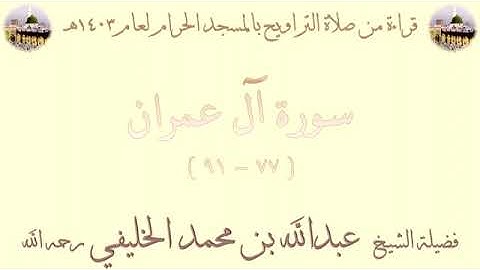 قراءة من صلاة التراويح بالمسجد الحرام لعام ١٤٠٣هـ
سورة آل عمران
( ٧٧ - ٩١ )
فضيلة الشيخ عبدالله بن محمد الخليفي رحمه الله